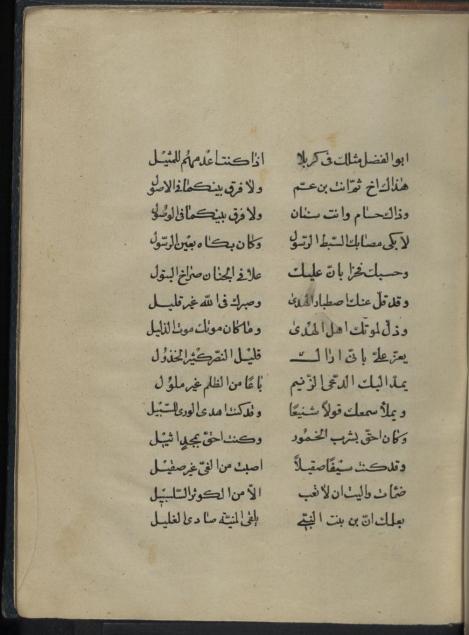 ابو الفضل مثلك فى كربلا اذا كنتما عدمتم للمثيل
هذاك اخ ثم انت بن عم ولا فرق بينكما فى الاصول
وذاك حسام وانت سنان ولا فرق بينكما فى الوصول
لابكى مصابك السبط الرسول وكان بكاه بعين الرسول
وحسبك فخرا بان عليك علا فى الجنان صراخ البتول
وقد قل عنك اصطبار الهدى وصبرك فى الله غير قليل
وذل لموتك اهل الهدى وما كان موتك موت الذليل
يعز على بانى اراك قليل النصر كثير الخذول
يمد اليك الدعى الزنيم باعا من الظلم غير ملول
ويملأ سمعك قولا شنيعا وقد كنت اهدى الورى للسبيل
وكان احق بشرب الخمور وكنت احق بمجد اثيل
وقد كنت سيفا صقيلا اصبت من الغى غير صقيل
ضمئت واليت ان لا تعب الا من الكوثر السلسبيل
بعلمك ان بن بنت النبى يلقى المنية صادى الغليل